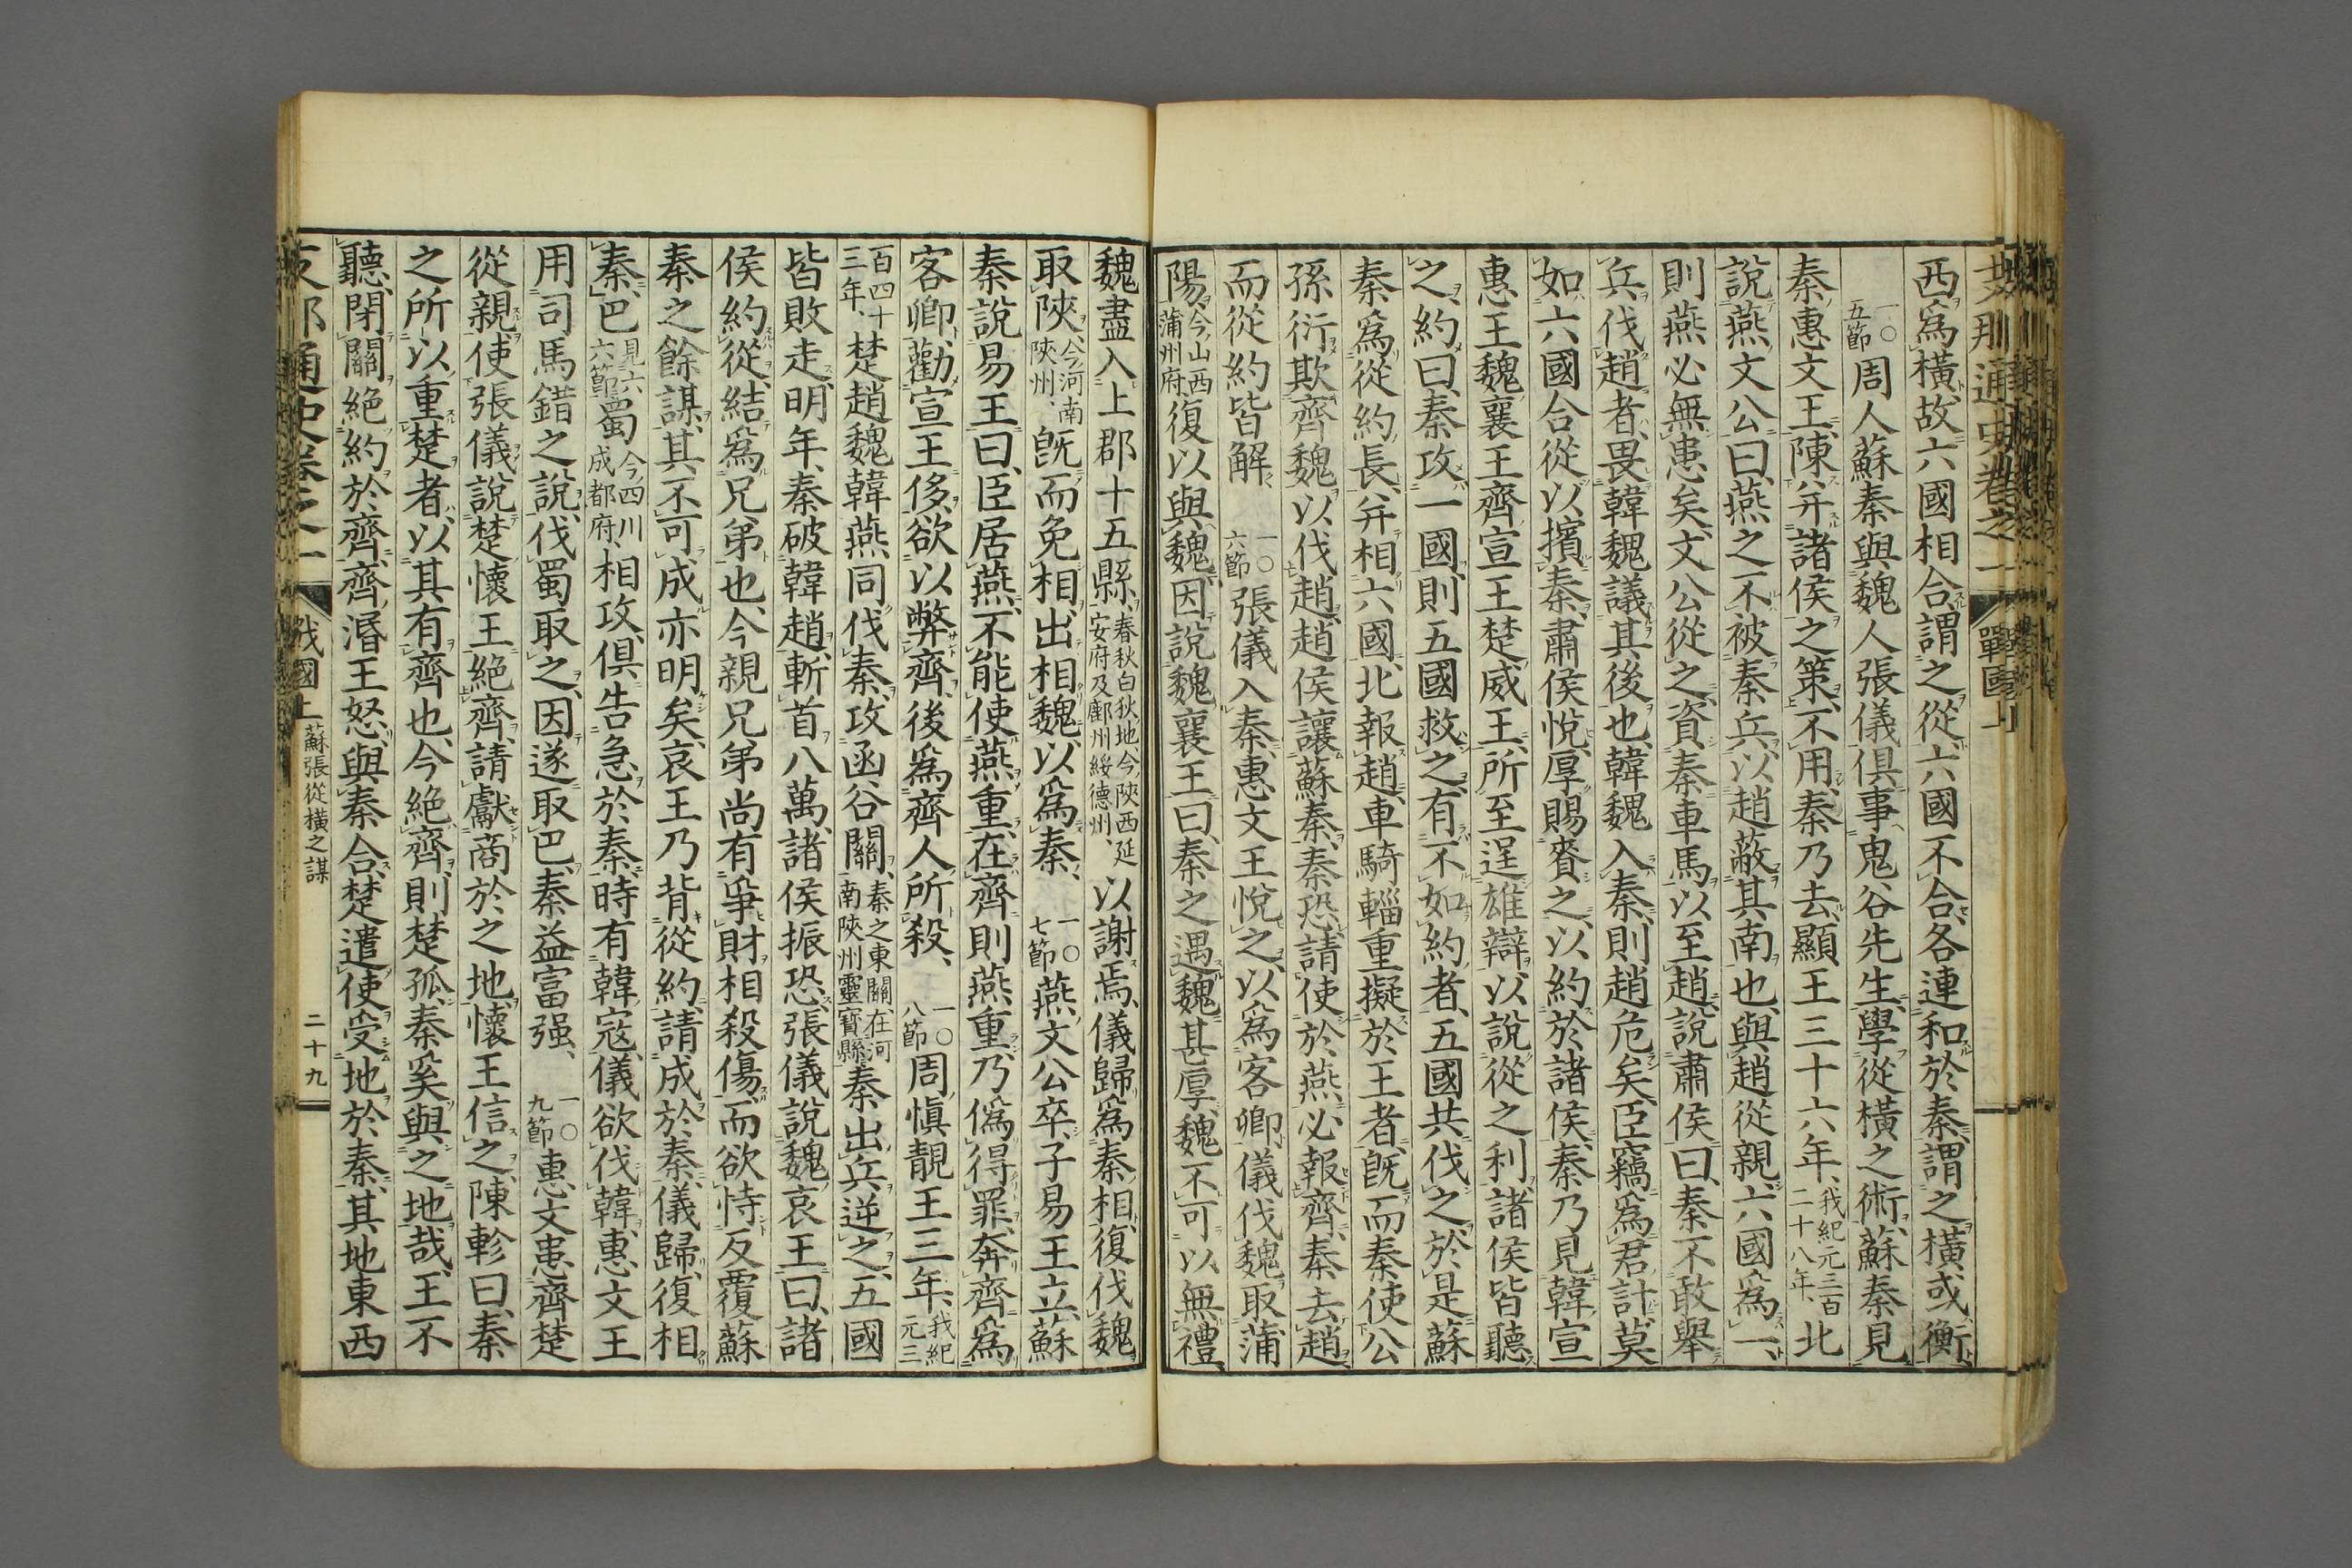 支那通史卷之一 戰國上
西爲橫、故六國相合、謂之從、六國不合、各連和於秦、謂之橫或衡、
一〇五節 周人蘇秦與魏人張儀俱事鬼谷先生、學從橫之術、蘇秦見
秦惠文王、陳幷諸侯之策、不用、秦乃去、顯王三十六年、我紀元三百二十八年、北
說燕文公曰、燕之不被秦兵、以趙蔽其南也、與趙從親、六國爲一、
則燕必無患矣、文公從之、資秦車馬、以至趙、說肅侯曰、秦不敢舉
兵伐趙者、畏韓魏議其後也、韓魏入秦、則趙危矣、臣竊爲君計、莫
如六國合從以擯秦、肅侯悅、厚賜賚之、以約於諸侯、秦乃見韓宣
惠王魏襄王齊宣王楚威王、所至逞雄辯、以說從之利、諸侯皆聽
之、約曰、秦攻一國、則五國救之、有不如約者、五國共伐之、於是蘇
秦爲從約長、幷相六國、北報趙、車騎輜重擬於王者、旣而秦使公
孫衍欺齊魏、以伐趙、趙侯讓蘇秦、秦恐、請使於燕、必報齊、秦去趙、
而從約皆解、 一〇六節 張儀入秦、惠文王悅之、以爲客卿、儀伐魏取蒲
陽、今山西蒲州府、復以與魏、因說魏襄王曰、秦之遇魏甚厚、魏不可以無禮、
魏盡入上郡十五縣、春秋白狄地、今陝西延安府及鄜州綏德州、以謝焉、儀歸爲秦相、復伐魏
取陝、今河南陝州、旣而免相、出相魏、以爲秦、 一〇七節 燕文公卒、子易王立、蘇
秦說易王曰、臣居燕、不能使燕重、在齊則燕重、乃僞得罪、奔齊、爲
客卿、勸宣王侈、欲以弊齊、後爲齊人所殺、 一〇八節 周愼靚王三年、我紀元三
百四十三年、楚趙魏韓燕同伐秦、攻函谷關、秦之東關、在河南陝州靈寶縣、秦出兵逆之、五國
皆敗走、明年、秦破韓趙、斬首八萬、諸侯振恐、張儀說魏哀王曰、諸
侯約從、結爲兄弟也、今親兄弟尚有爭財相殺傷、而欲恃反覆蘇
秦之餘謀、其不可成亦明矣、哀王乃背從約、請成於秦、儀歸復相
秦、巴見六六節蜀今四川成都府、相攻、俱告急於秦、時有韓寇、儀欲伐韓、惠文王
用司馬錯之說、伐蜀取之、因遂取巴、秦益富强、 一〇九節 惠文患齊楚
從親、使張儀說楚懷王絕齊、請獻商於之地、懷王信之、陳軫曰、秦
之所以重楚者、以其有齊也、今絕齊、則楚孤、秦奚與之地哉、王不
聽、閉關絕約於齊、齊湣王怒、與秦合、楚遣使受地於秦、其地東西
支那通史卷之一 戰國上 蘇張從橫之謀 二十九